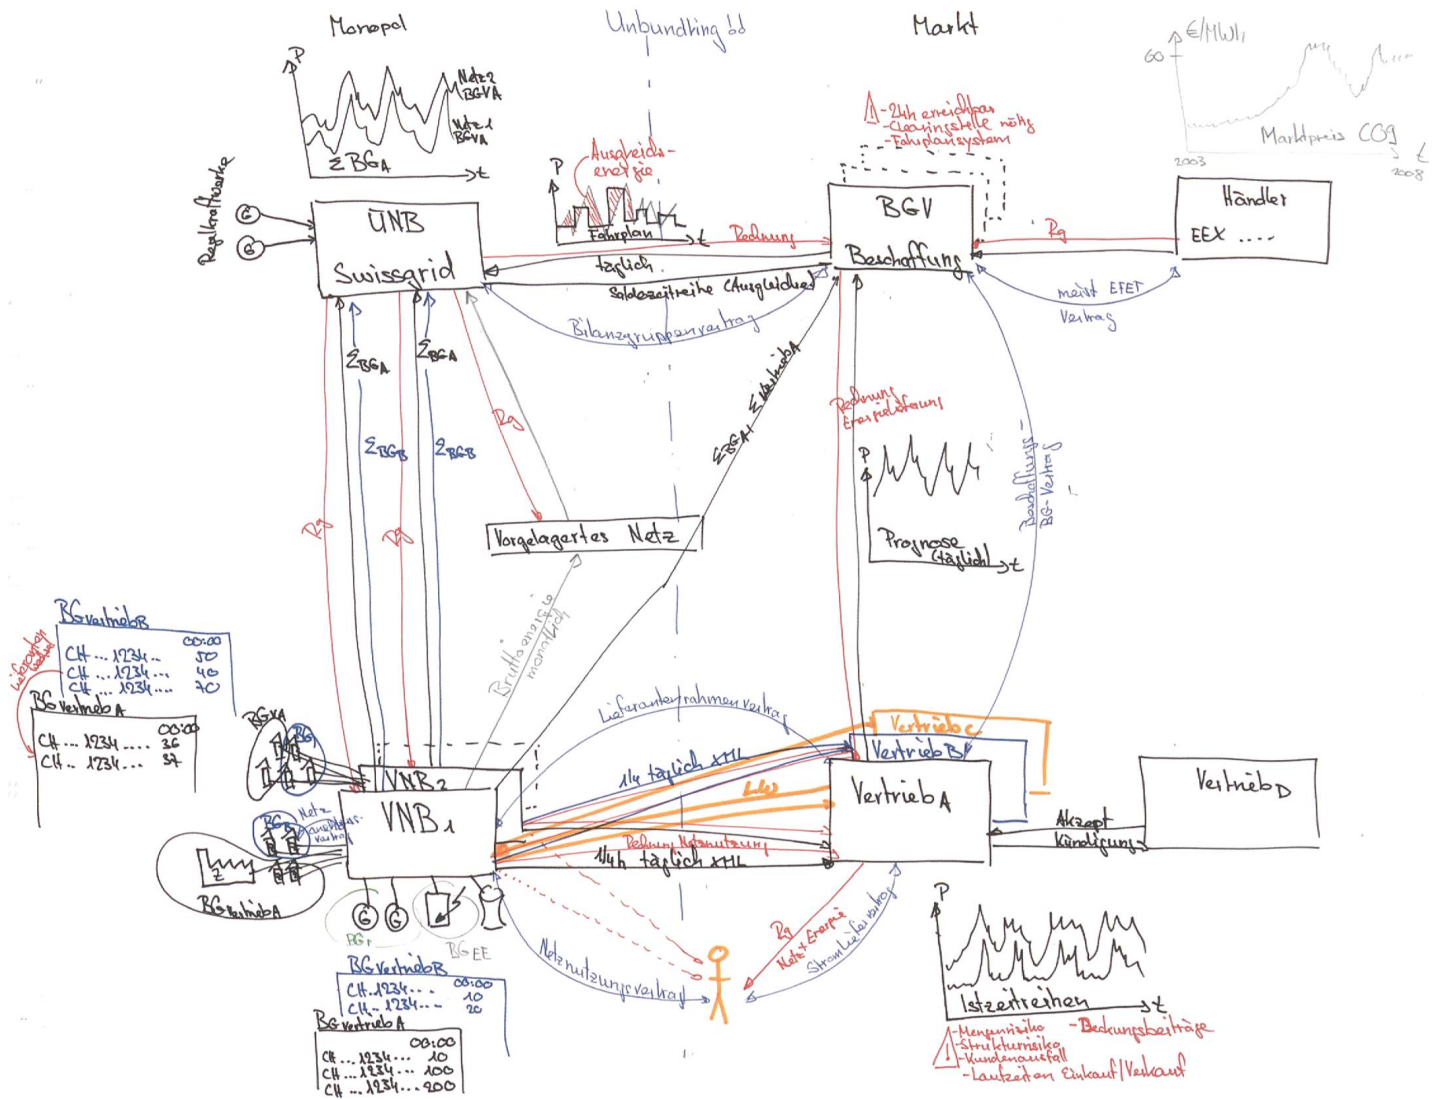 Monopol
Unbundling !!
Markt
P
Netz 2
BGVA
Netz 1
BGVA
ΣBGA
t
- 24h erreichbar
- Clearingstelle nötig
- Fahrplansystem
€/MWh
60
Marktpreis
2003
t
2008
Regelkraftwerke
G
G
ÜNB
Swissgrid
Ausgleichs-
energie
P
Fahrplan
t
Rechnung
täglich
Saldozeitreihe (Ausgleiche)
Bilanzgruppenvertrag
BGV
Beschaffung
Rg
Händler
EEX ....
meist EFET
Vertrag
ΣBGA
ΣBGA
ΣBGB
ΣBGB
Rg
Rg
Rg
ΣBGA, ΣVertriebA
Rechnung
Energielieferung
P
Prognose
(täglich)
t
Beschaffungs-
BG-Vertrag
Vorgelagertes Netz
Bruttoenergie
monatlich
BGVertriebB
00:00
CH ... 1234.. 50
CH ... 1234... 40
CH ... 1234.... 70
Lieferanten
wechsel
BGVertriebA
00:00
CH ... 1234 .... 36
CH ... 1234.... 37
BGVA
BG
VNB2
VNB1
BGB
Netz
anschluss-
vertrag
BGVertriebA
G
G
BGEE
Lieferantenrahmenvertrag
1/4 täglich XML
LW
Rechnung Netznutzung
1/4h täglich XML
VertriebC
VertriebB
VertriebA
VertriebD
Akzept
Kündigung
Netznutzungsvertrag
Rg
Netz+Energie
Stromliefervertrag
BGVertriebB
00:00
CH..1234... 10
CH...1234... 20
BGVertriebA
00:00
CH ... 1234... 10
CH ... 1234... 100
CH ... 1234... 200
P
Istzeitreihen
t
- Mengenrisiko
- Deckungsbeiträge
- Strukturrisiko
- Kundenausfall
- Laufzeiten Einkauf/Verkauf